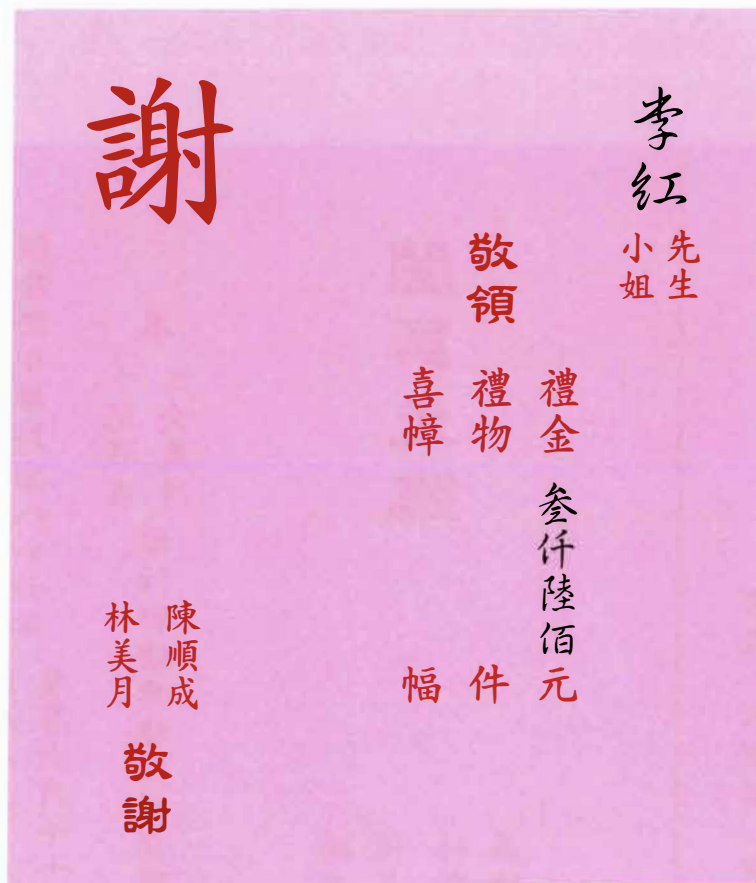 李紅
先生
小姐
敬領
禮金 叁仟陸佰 元
禮物 件
喜幛 幅
謝
陳順成
林美月
敬謝